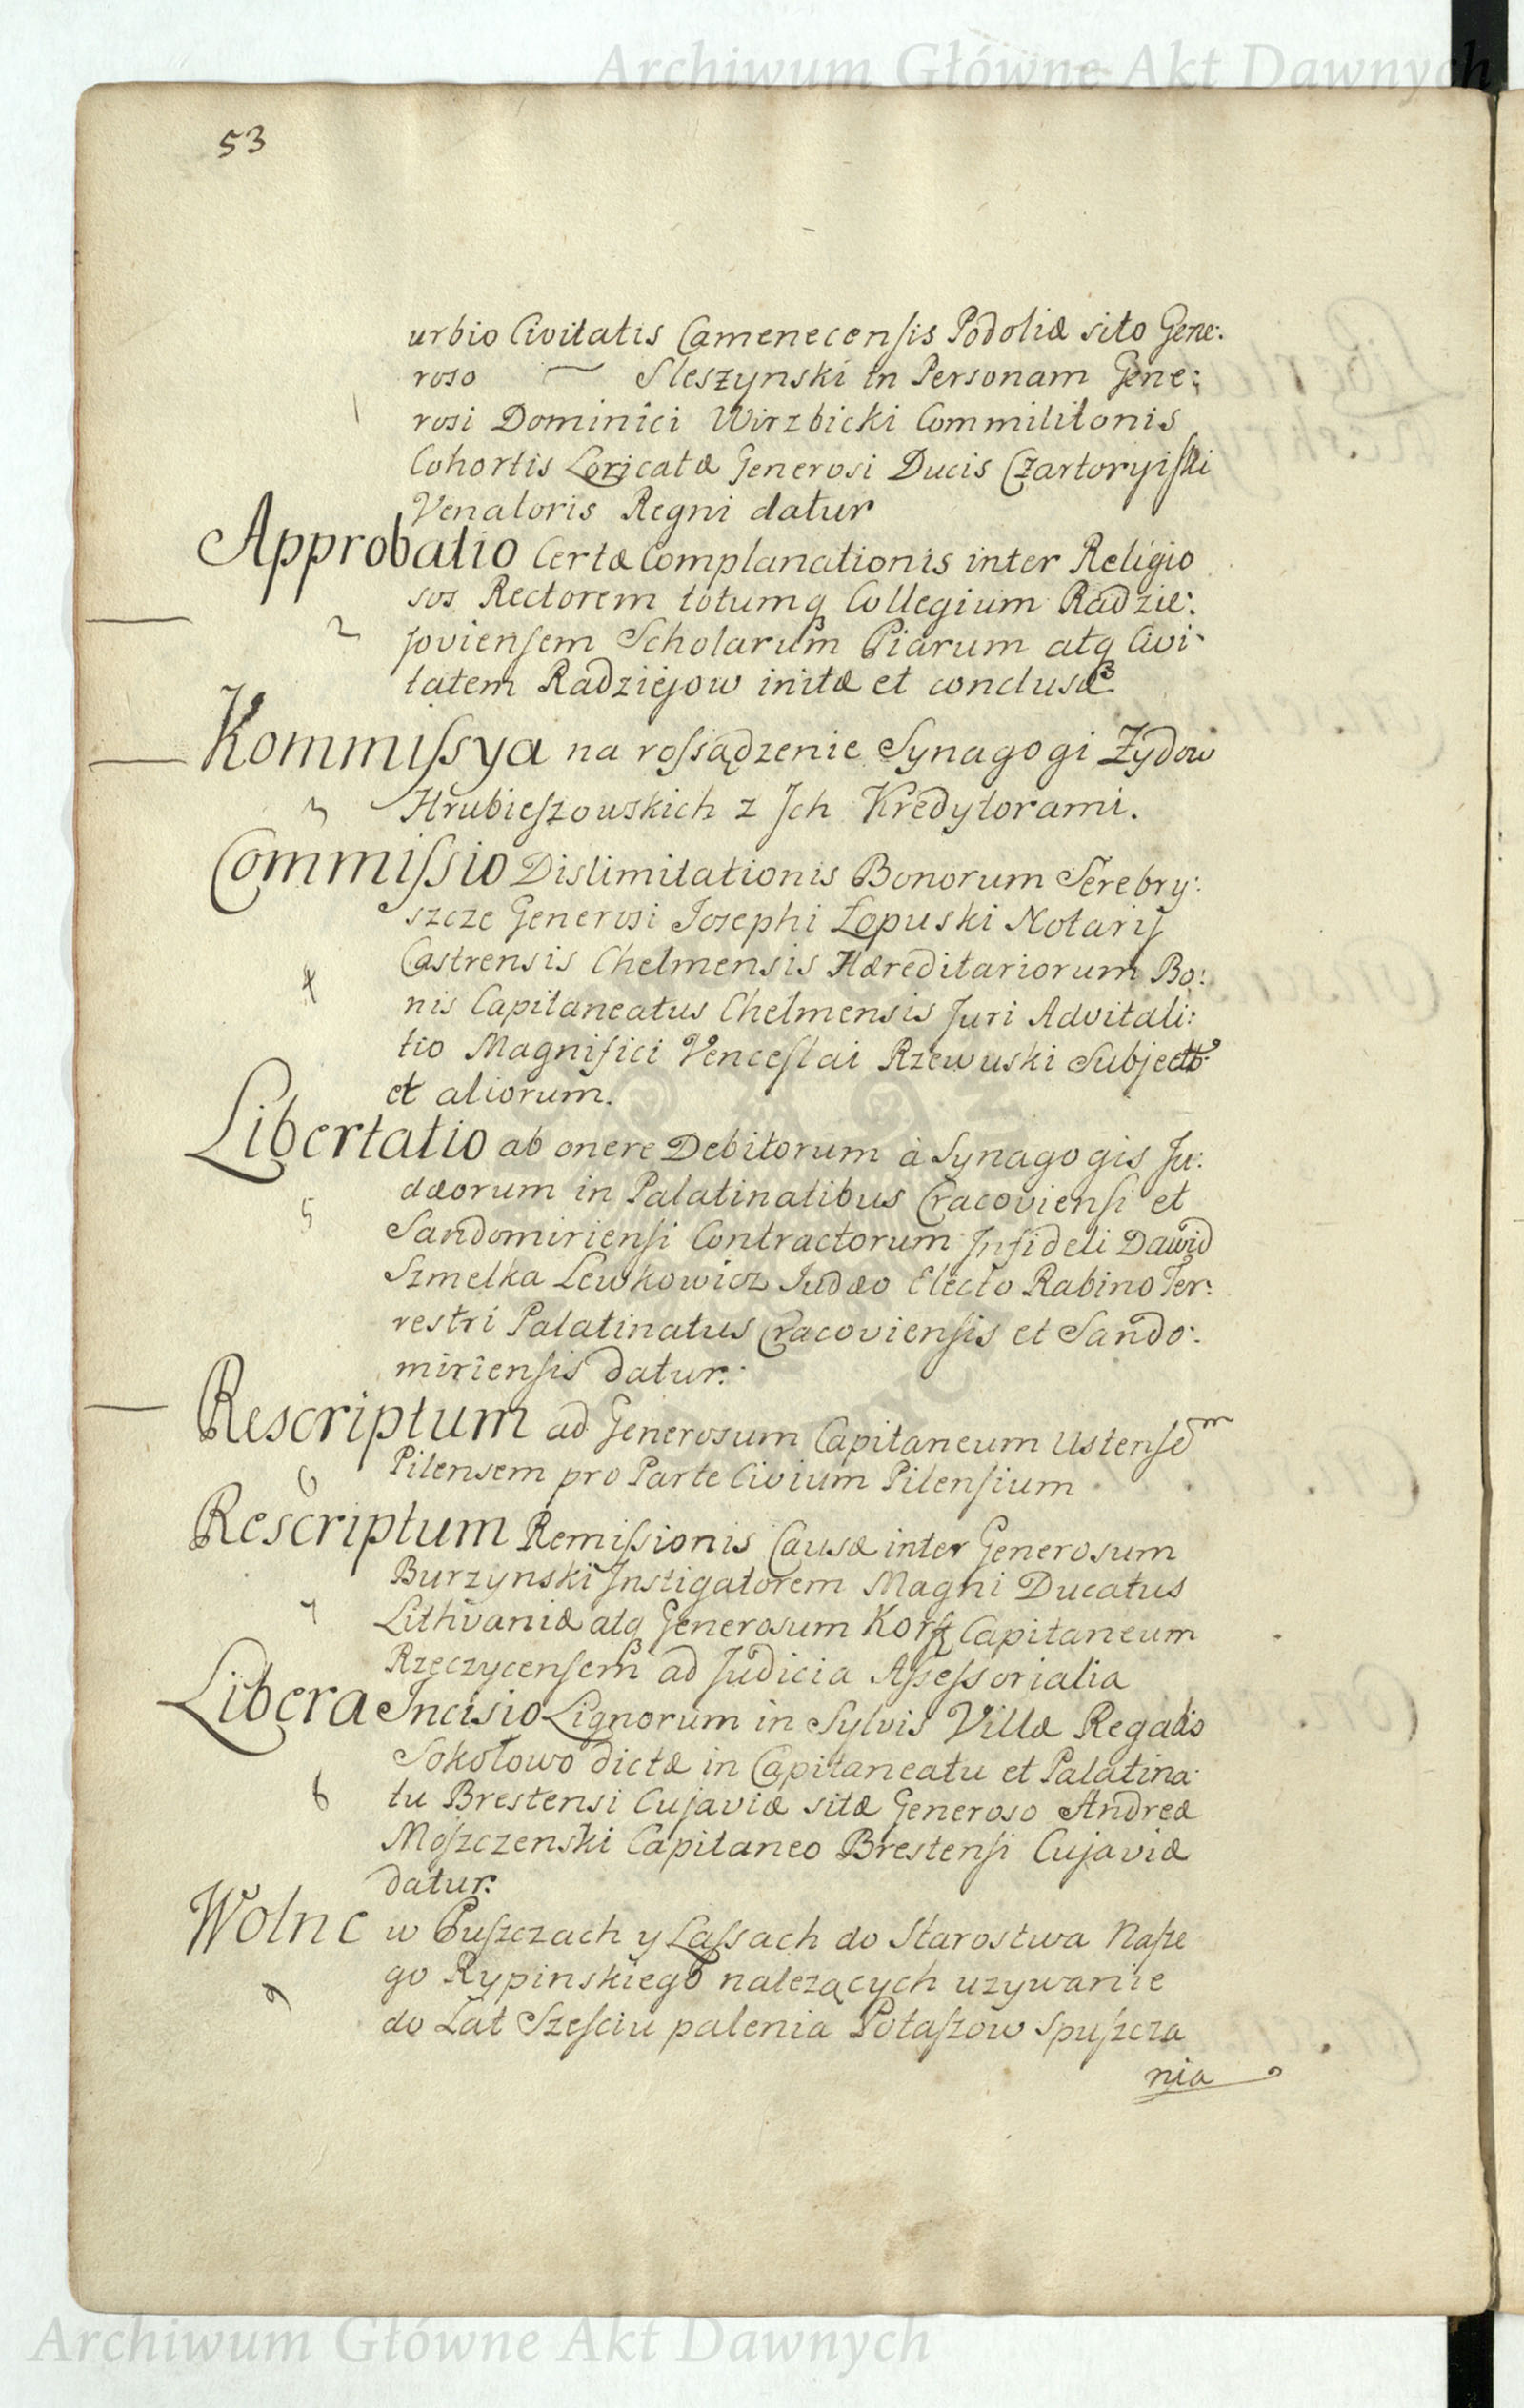 Archiwum Główne Akt Dawnych
53
urbio Civitatis Camenecensis Podoliæ sito Gene:
roso — Sleszynski in Personam Gene:
1
rosi Dominici Wirzbicki Commilitonis
Cohortis Loricatæ Generosi Ducis Czartoryiski
Venatoris Regni datur
Approbatio Certæ Complanationis inter Religio
sos Rectorem totumq Collegium Radzie:
2
joviensem Scholarum Piarum atq Civi-
tatem Radziejow initæ et conclusæ.
Kommissya na rossądzenie Synagogi Żydow
3
Hrubieszowskich z Jch Kredytorami.
Commissio Dislimitationis Bonorum Serebry:
szcze Generosi Josephi Łopuski Notarij
4
Castrensis Chelmensis Hæreditariorum Bo:
nis Capitaneatus Chelmensis Juri Advitali:
tio Magnifici Venceslai Rzewuski Subjecto
et aliorum.
Libertatio ab onere Debitorum à Synagogis Ju:
dæorum in Palatinatibus Cracoviensi et
5
Sandomiriensi Contractorum Infideli Dawid
Szmelka Lewkowicz Judæo Electo Rabino Ter:
restri Palatinatus Cracoviensis et Sando:
miriensis datur.
Rescriptum ad Generosum Capitaneum Ustensem
6
Pilensem pro Parte Civium Pilensium
Rescriptum Remissionis Causæ inter Generosum
Burzynski Instigatorem Magni Ducatus
7
Lithvaniæ atq Generosum Korff Capitaneum
Rzeczycensem ad Judicia Assessorialia
Libera Incisio Lignorum in Sylvis Villæ Regalis
Sokołowo dictæ in Capitaneatu et Palatina-
8
tu Brestensi Cujaviæ sitæ Generoso Andreæ
Moszczenski Capitaneo Brestensi Cujaviæ
datur.
Wolne w Puszczach y Lassach do Starostwa Nasze
go Rypinskiego nalezących uzywanie
9
do Lat Szesciu palenia Potaszow spuszcza
nia
Archiwum Główne Akt Dawnych